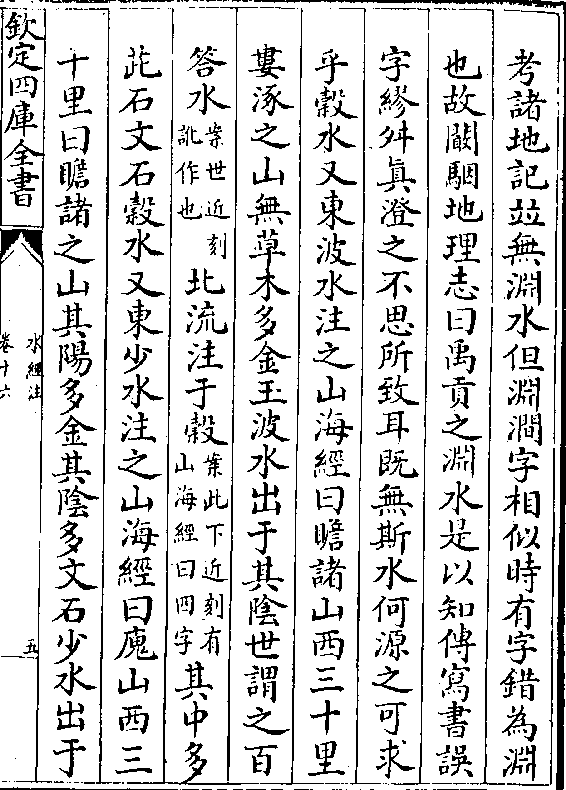 考諸地記竝無淵水但淵澗字相似時有字錯為淵
也故闞駰地理志曰禹貢之淵水是以知傳寫書誤
字繆舛眞澄之不思所致耳既無斯水何源之可求
乎穀水又東波水注之山海經曰瞻諸山西三十里
婁涿之山無草木多金玉波水出于其陰世謂之百
答水案世近刻訛作也北流注于穀案此下近刻有山海經曰四字其中多
茈石文石穀水又東少水注之山海經曰廆山西三
十里曰瞻諸之山其陽多金其陰多文石少水出于
欽定四庫全書
水經注
卷十六
五